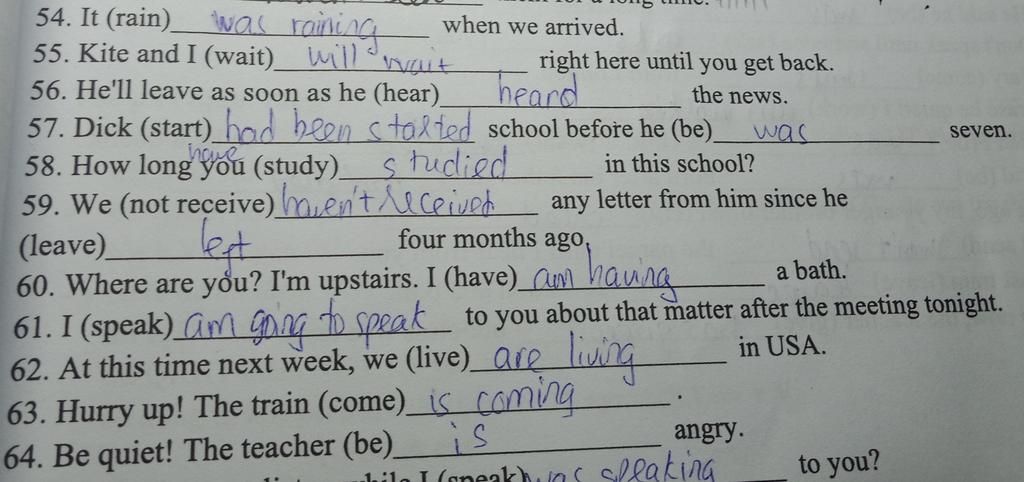 54. It (rain) was raining when we arrived.
55. Kite and I (wait) will wait right here until you get back.
56. He'll leave as soon as he (hear) heard the news.
57. Dick (start) had been started school before he (be) was seven.
58. How long have you (study) studied in this school?
59. We (not receive) haven't received any letter from him since he
(leave) left four months ago.
60. Where are you? I'm upstairs. I (have) am having a bath.
61. I (speak) am going to speak to you about that matter after the meeting tonight.
62. At this time next week, we (live) are living in USA.
63. Hurry up! The train (come) is coming.
64. Be quiet! The teacher (be) is angry.
I (speak) was speaking to you?